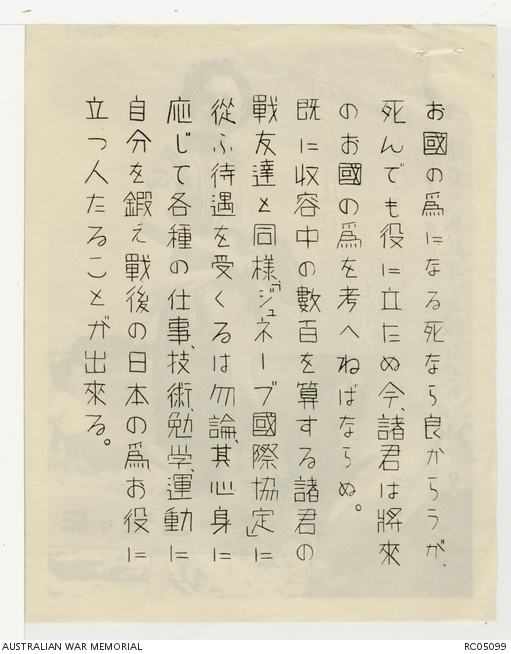 お國の爲になる死なら良からうが、
死んでも役に立たぬ今、諸君は將來
のお國の爲を考へねばならぬ。
既に収容中の數百を算する諸君の
戰友達と同様「ジュネーブ國際協定」に
從ふ待遇を受くるは勿論、其心身に
応じて各種の仕事、技術、勉学、運動に
自分を鍛え戰後の日本の爲お役に
立つ人たることが出來る。
AUSTRALIAN WAR MEMORIAL
RC05099